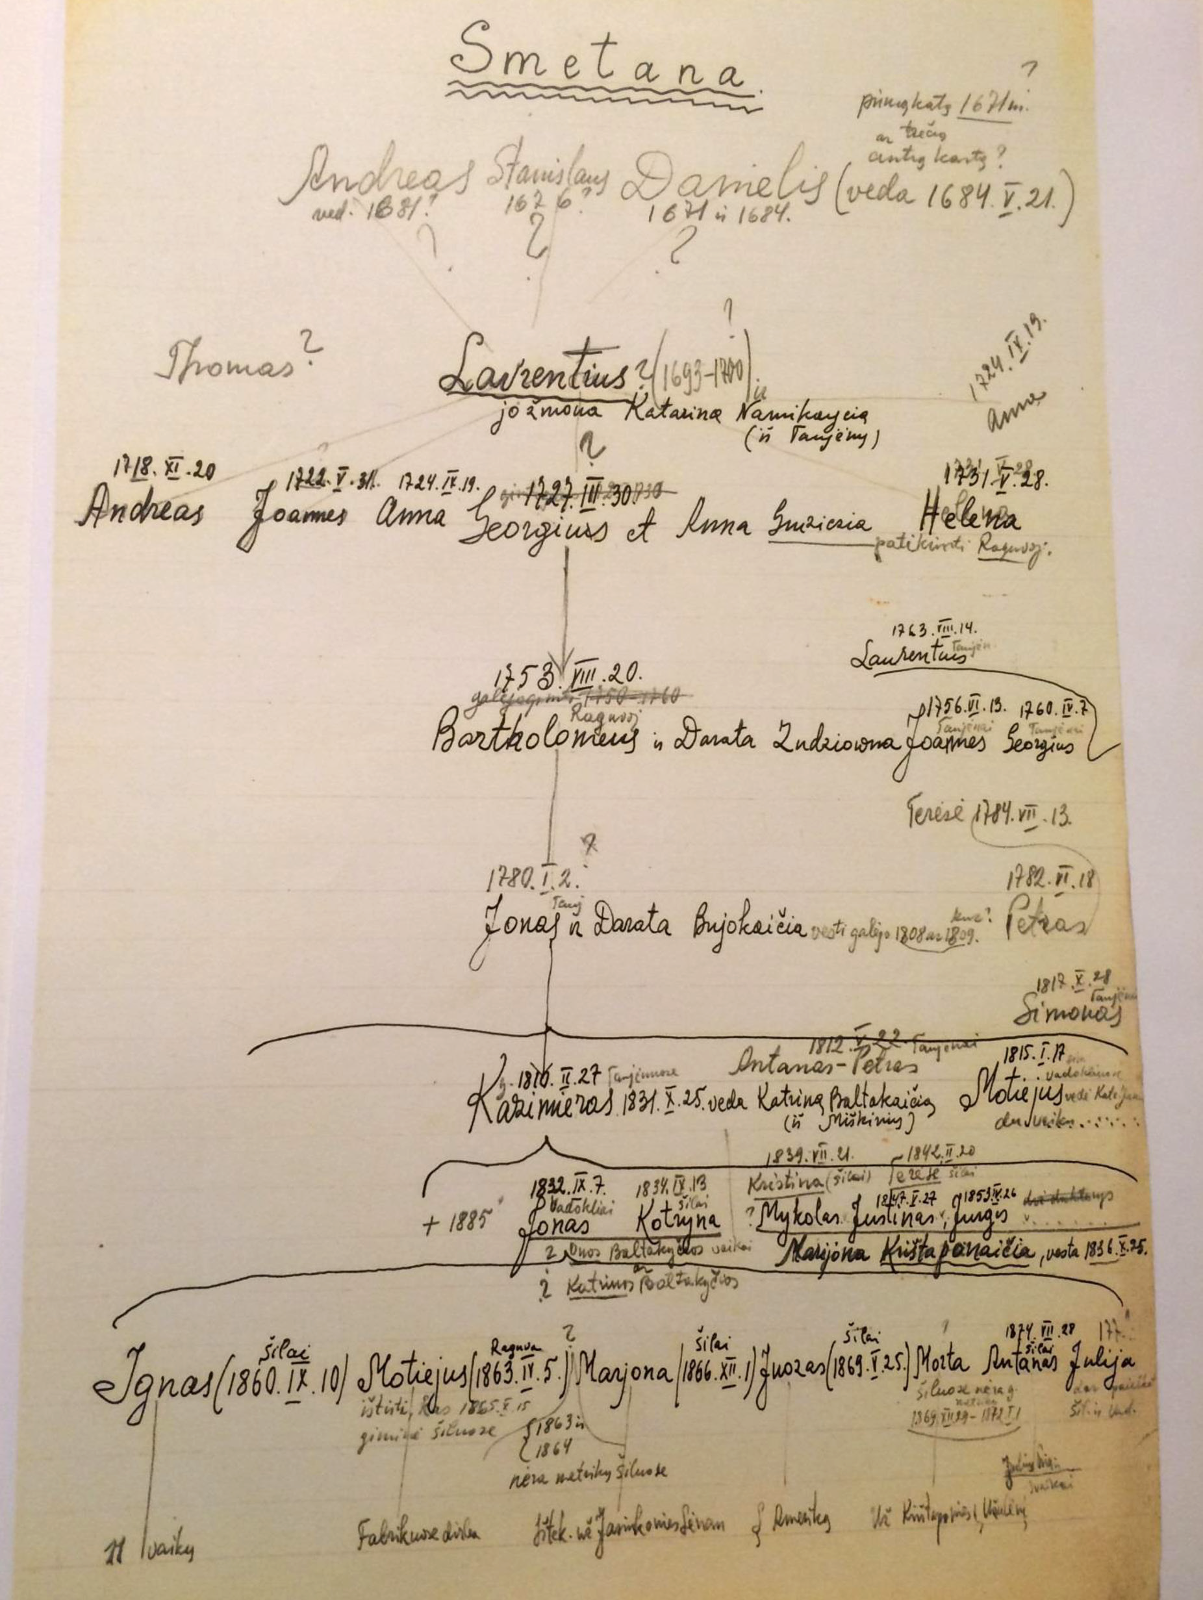 Smetana
?
pirmą kartą 1671 m.
ar trečią
antrą kartą?
Andreas Stanislaus Danielis (veda 1684.V.21.)
ved. 1681? 1676? 1671 ir 1684.
? ? ?
Thomas? Laurentius? (1693-1700) ir
?
1724.IX.19.
Anna
jo žmona Katarina
(iš Taujėnų)
?
1718.XI.20 1722.V.31. 1724.IX.19. 1727.III.30 1731.V.28.
Andreas Joannes Anna Georgius et Anna Helena
patikrinti Raguvoj.
1763.VIII.14.
Laurentius
1753.VIII.20.
galėjo gimti 1750-1760
Raguvoj
1756.VI.13. 1760.IV.7
Taujėnai Taujėnai
Bartholomeus ir Darata Zudziowna Joannes Georgius
Teresė 1784.VII.13.
?
1780.I.2. 1782.VI.18
Tauj
Jonas ir Darata Bujokaičia vesti galėjo 1808 ar 1809. Petras
1817.X.28
Simonas
1812.V.22 Taujėnai
Antanas-Petras
1815.I.17
g. 1810.II.27 Taujėnuose
Kazimieras 1831.X.25. veda Katriną Baltakaičią Motiejus
(iš Miškinių)
du vaikai
1839.VII.21. 1842.II.20
Kristina (Šilai) Teresė Šilai
1832.IX.7. 1834.IX.13
Vadokliai Šilai
1847.V.27 1853.IV.26
+ 1885 Jonas Kotryna ? Mykolas Justinas, Jurgis
? Onos Baltakyčios vaikai Marijona Krištaponaičia, vesta 1836.X.25.
ar
? Katrinos Baltakyčios
Šilai Raguva ? Šilai Šilai 1874.VII.28
Šilai
Ignas (1860.IX.10) Motiejus (1863.IV.5.) Marjona (1866.XII.1) Juozas (1869.V.25.) Morta Antanas Julija
ištirti, kas 1865.X.15
giminė Šiluose
1863 ir
1864
nėra metrikų Šiluose
Šiluose nėra g.
metrikų
1869.VII.29-1872.I.1
11 vaikų Fabrikuose dirba Į Ameriką Už